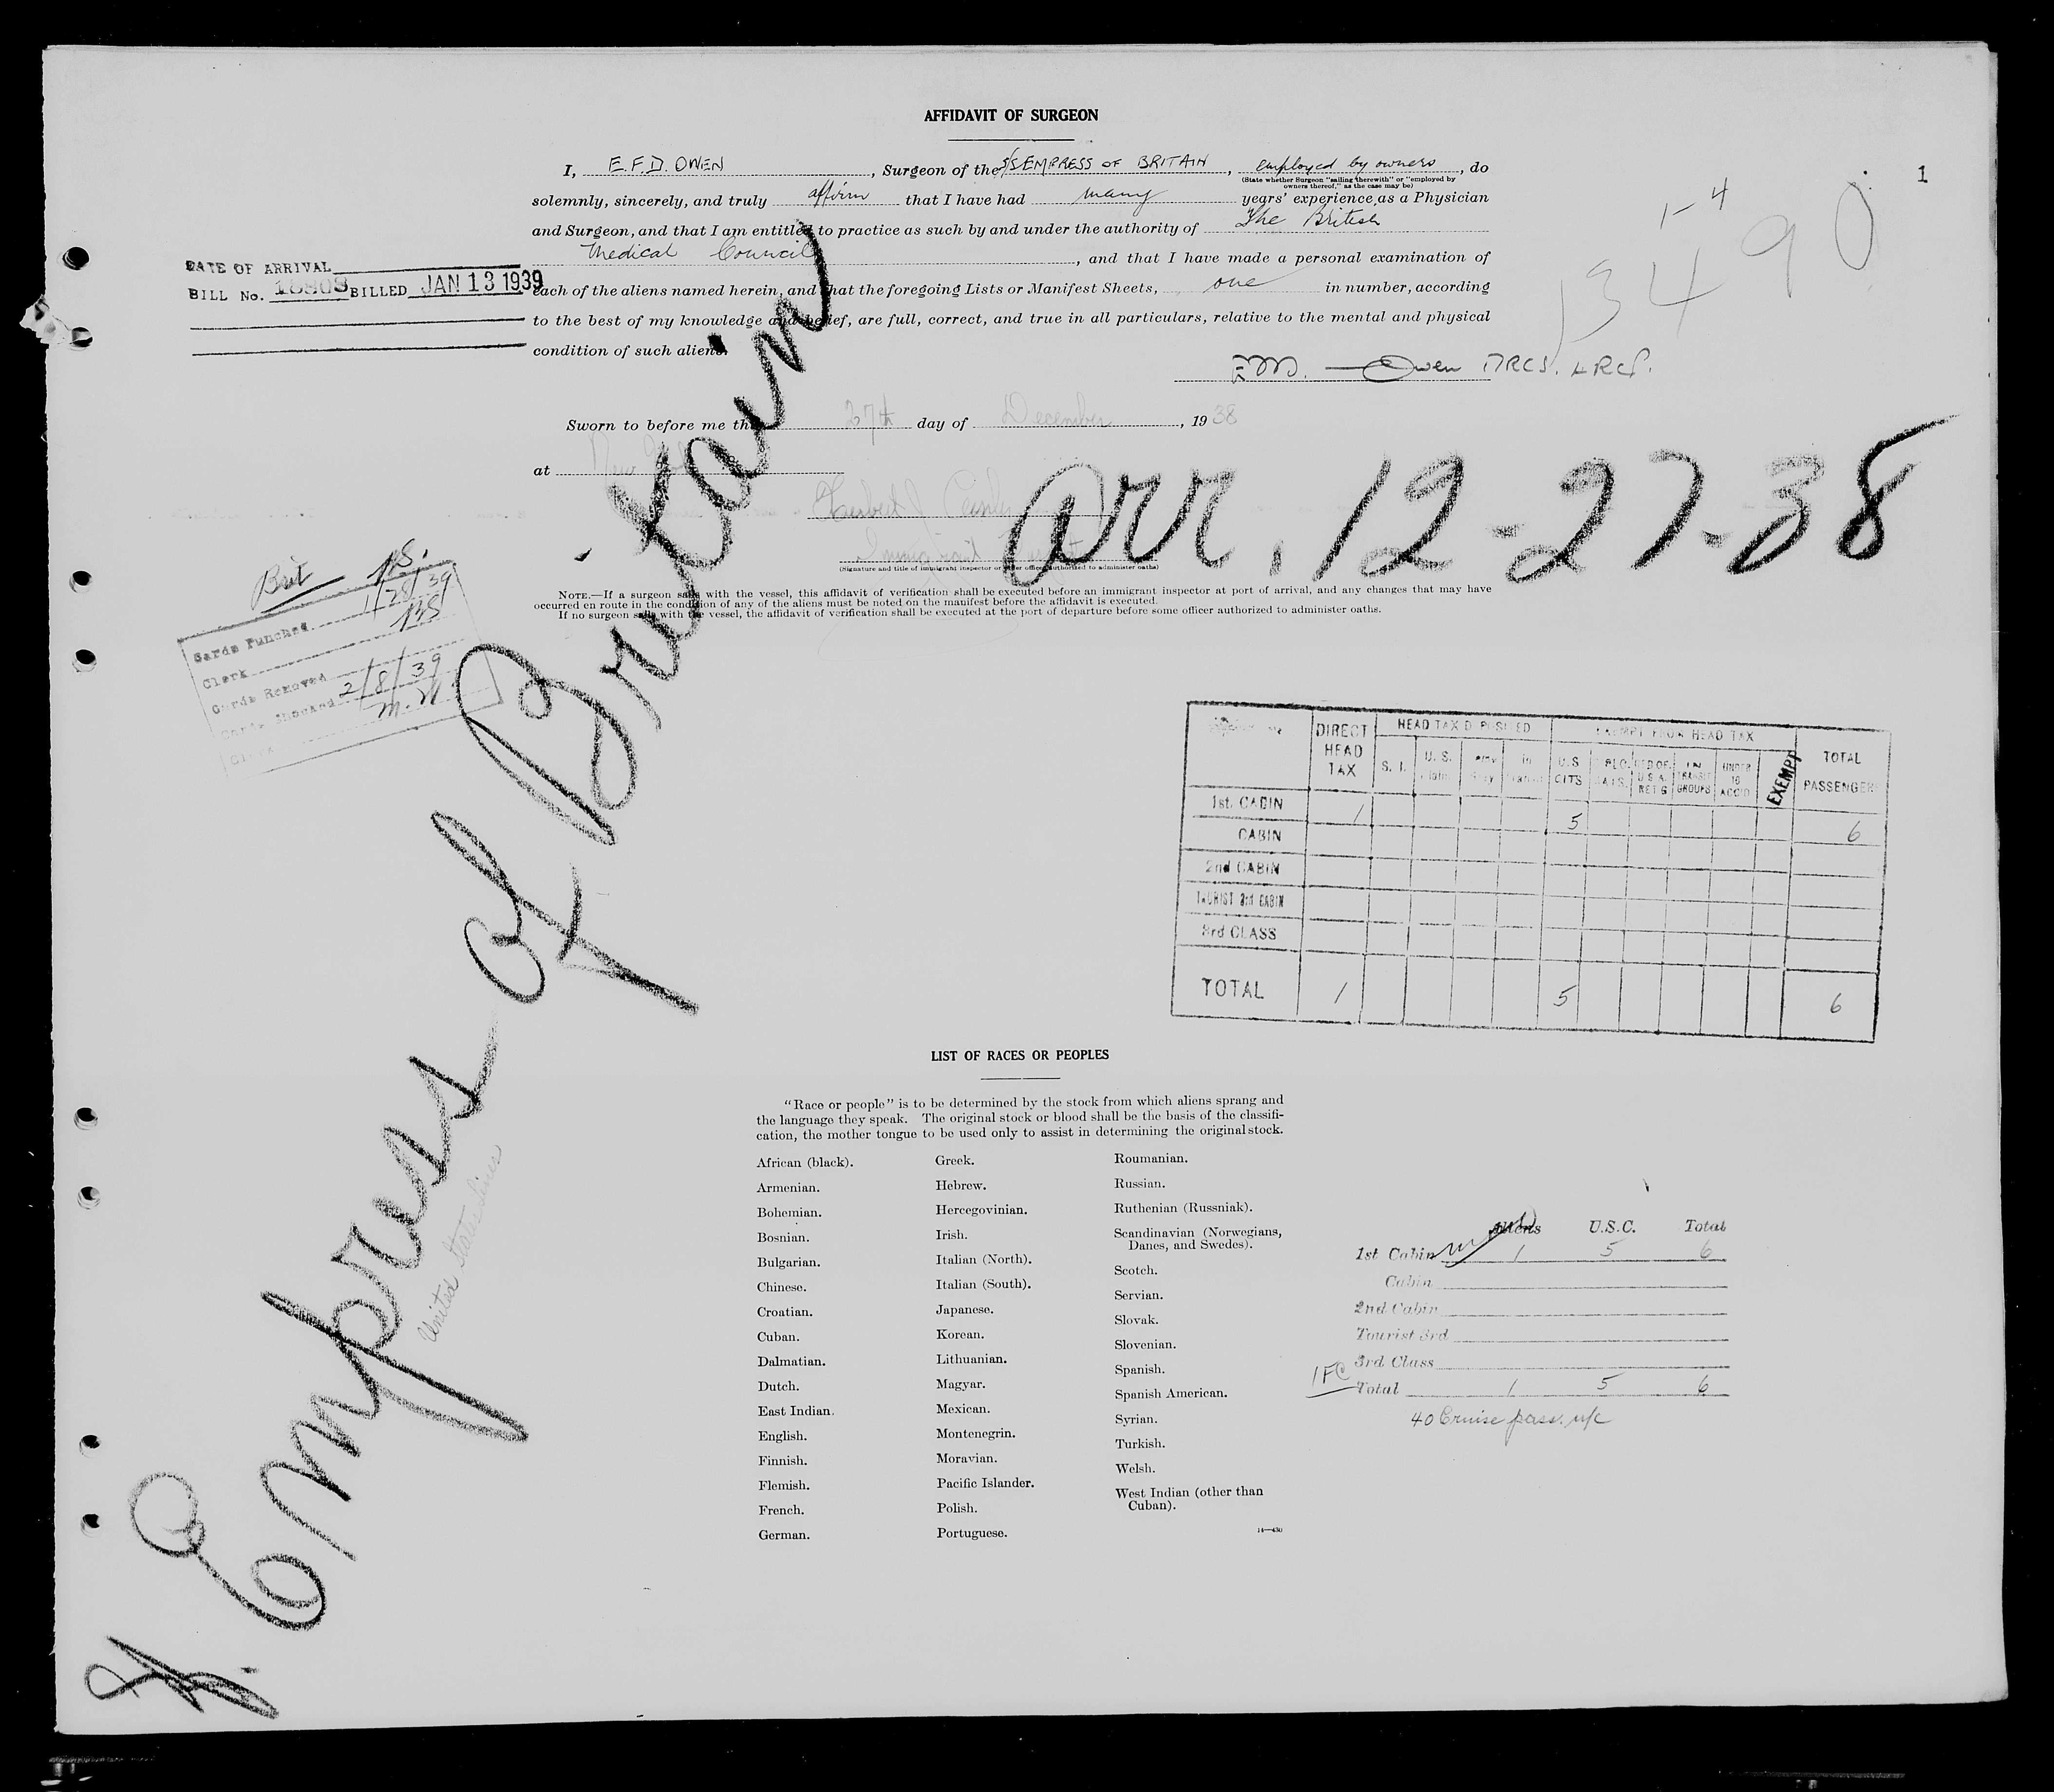 AFFIDAVIT OF SURGEON
1
I, E.F.D. OWEN, Surgeon of the S/S EMPRESS OF BRITAIN, employed by owners, do
(State whether Surgeon "sailing therewith" or "employed by
owners thereof," as the case may be)
solemnly, sincerely, and truly affirm that I have had many years' experience as a Physician
and Surgeon, and that I am entitled to practice as such by and under the authority of The British
Medical Council, and that I have made a personal examination of
each of the aliens named herein, and that the foregoing Lists or Manifest Sheets, one in number, according
to the best of my knowledge and belief, are full, correct, and true in all particulars, relative to the mental and physical
condition of such aliens.
Owen MRCS. LRCP.
1-4
13490
DATE OF ARRIVAL
BILL No. 18908 BILLED JAN 13 1939
Sworn to before me this 27th day of December, 1938
at New York
Immigrant Inspector
(Signature and title of immigrant inspector or other officer authorized to administer oaths)
arr. 12-27-38
NOTE.—If a surgeon sails with the vessel, this affidavit of verification shall be executed before an immigrant inspector at port of arrival, and any changes that may have
occurred en route in the condition of any of the aliens must be noted on the manifest before the affidavit is executed.
If no surgeon sails with the vessel, the affidavit of verification shall be executed at the port of departure before some officer authorized to administer oaths.
Brit
Cards Punched 1/28/39
Clerk
Cards Removed 2/8/39
Cards Checked M.W.
Clerk
S. Empress of Britain
United States Lines
DIRECT HEAD TAX
HEAD TAX DEPOSITED
EXEMPT FROM HEAD TAX
TOTAL PASSENGER
S. I.
U. S.
U.S CITS
IN TRANSIT GROUPS
UNDER 16 ACCO
EXEMPT
1st. CABIN 1 5 6
CABIN
2nd CABIN
TOURIST 3rd CABIN
3rd CLASS
TOTAL 1 5 6
LIST OF RACES OR PEOPLES
"Race or people" is to be determined by the stock from which aliens sprang and
the language they speak. The original stock or blood shall be the basis of the classifi-
cation, the mother tongue to be used only to assist in determining the original stock.
African (black).
Armenian.
Bohemian.
Bosnian.
Bulgarian.
Chinese.
Croatian.
Cuban.
Dalmatian.
Dutch.
East Indian.
English.
Finnish.
Flemish.
French.
German.
Greek.
Hebrew.
Hercegovinian.
Irish.
Italian (North).
Italian (South).
Japanese.
Korean.
Lithuanian.
Magyar.
Mexican.
Montenegrin.
Moravian.
Pacific Islander.
Polish.
Portuguese.
Roumanian.
Russian.
Ruthenian (Russniak).
Scandinavian (Norwegians,
Danes, and Swedes).
Scotch.
Servian.
Slovak.
Slovenian.
Spanish.
Spanish American.
Syrian.
Turkish.
Welsh.
West Indian (other than
Cuban).
14—430
Aliens U.S.C. Total
1st Cabin 1 5 6
Cabin
2nd Cabin
Tourist 3rd
3rd Class
1FC
Total 1 5 6
40 Cruise pass.